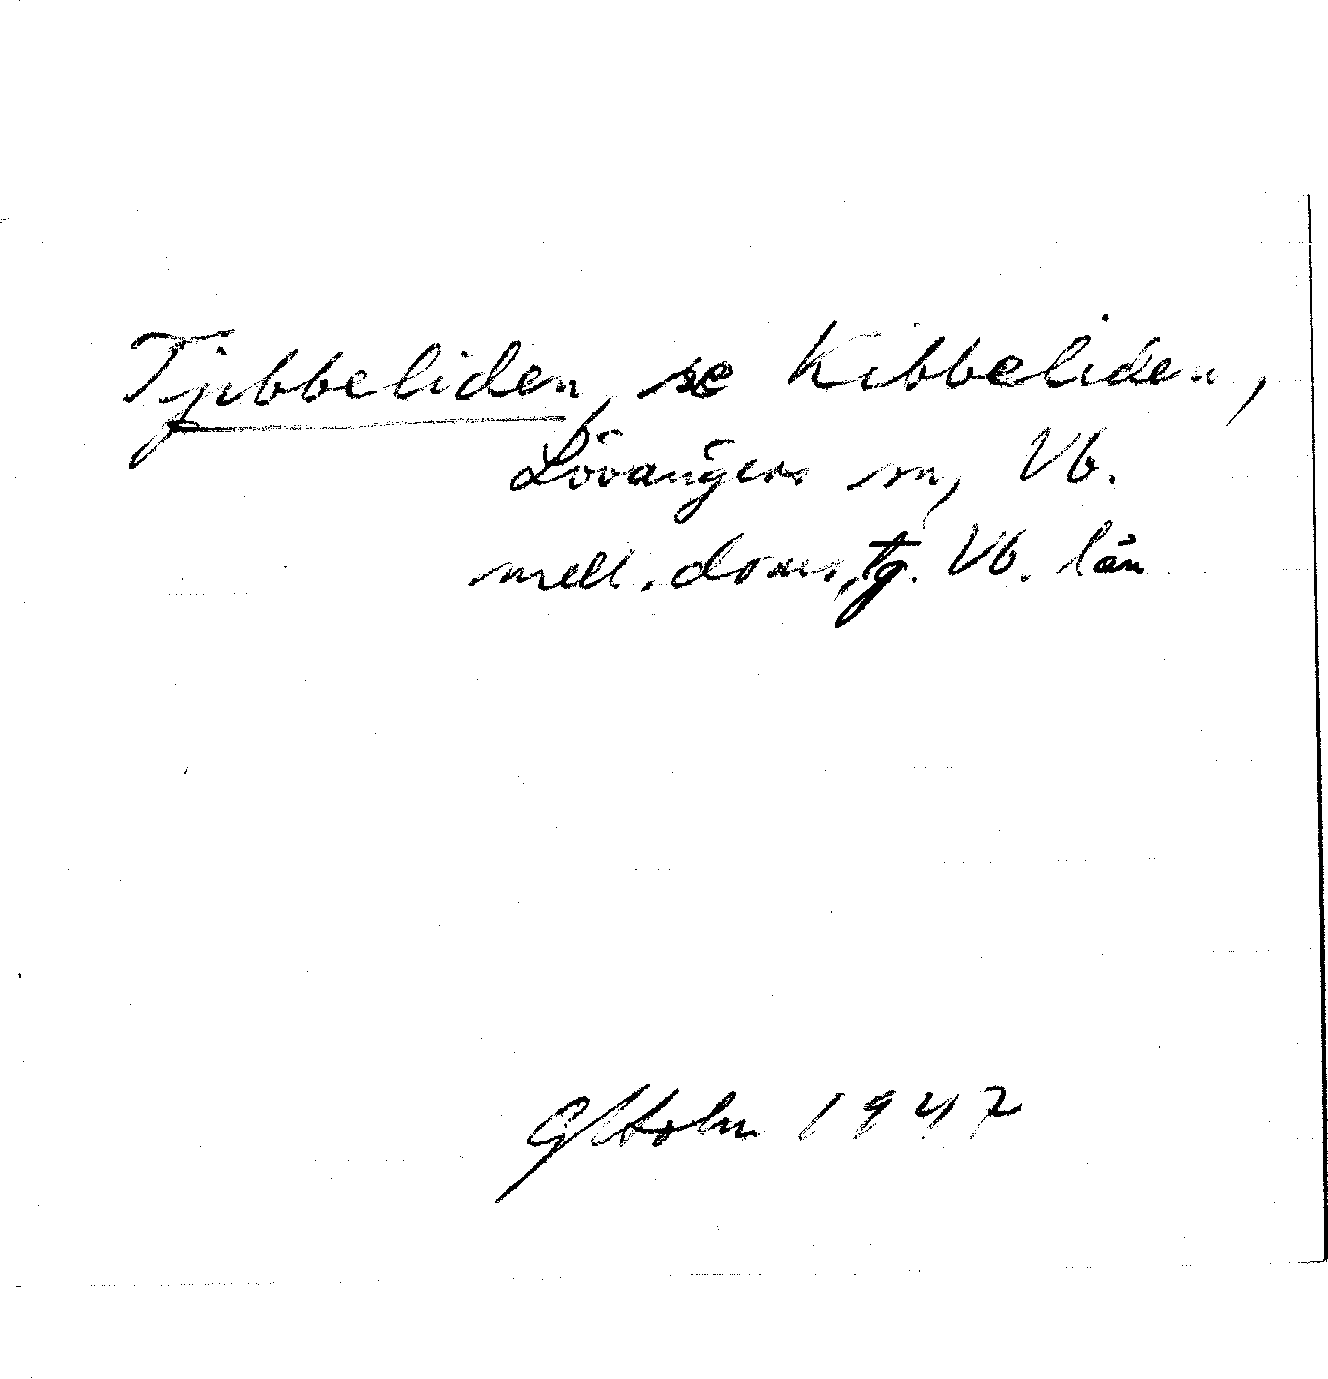 Tjibbeliden, se Kibbeliden,
Lövångers sn, Vb.
mell. doms.tg. Vb. län
GHolm 1947